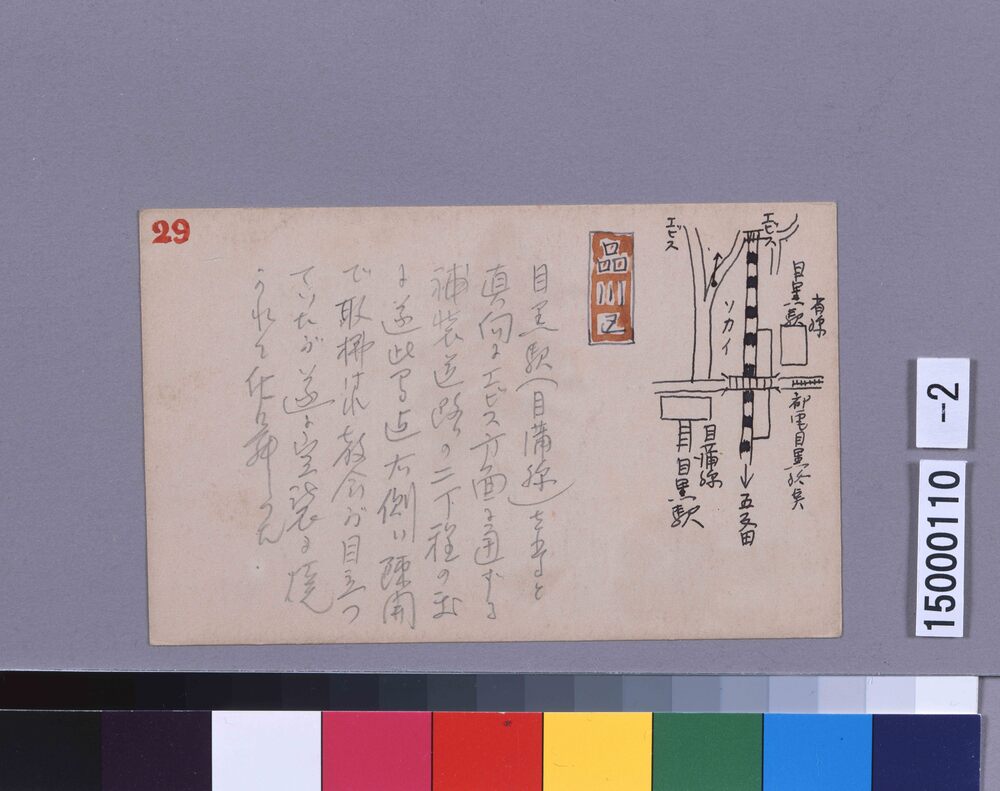 29
品川区
エビス
エビス
ソカイ
目黒駅
省線
都電目黒終点
五反田
目蒲線
目黒駅
目黒駅(目蒲線)を出ると
真向にエビス方面に通ずる
補装道路の二丁程の
に 此 近右側は疎開
で取拂はれ教会が目立つ
ていたが遂に空襲に焼
かれて仕舞つた
-2
15000110